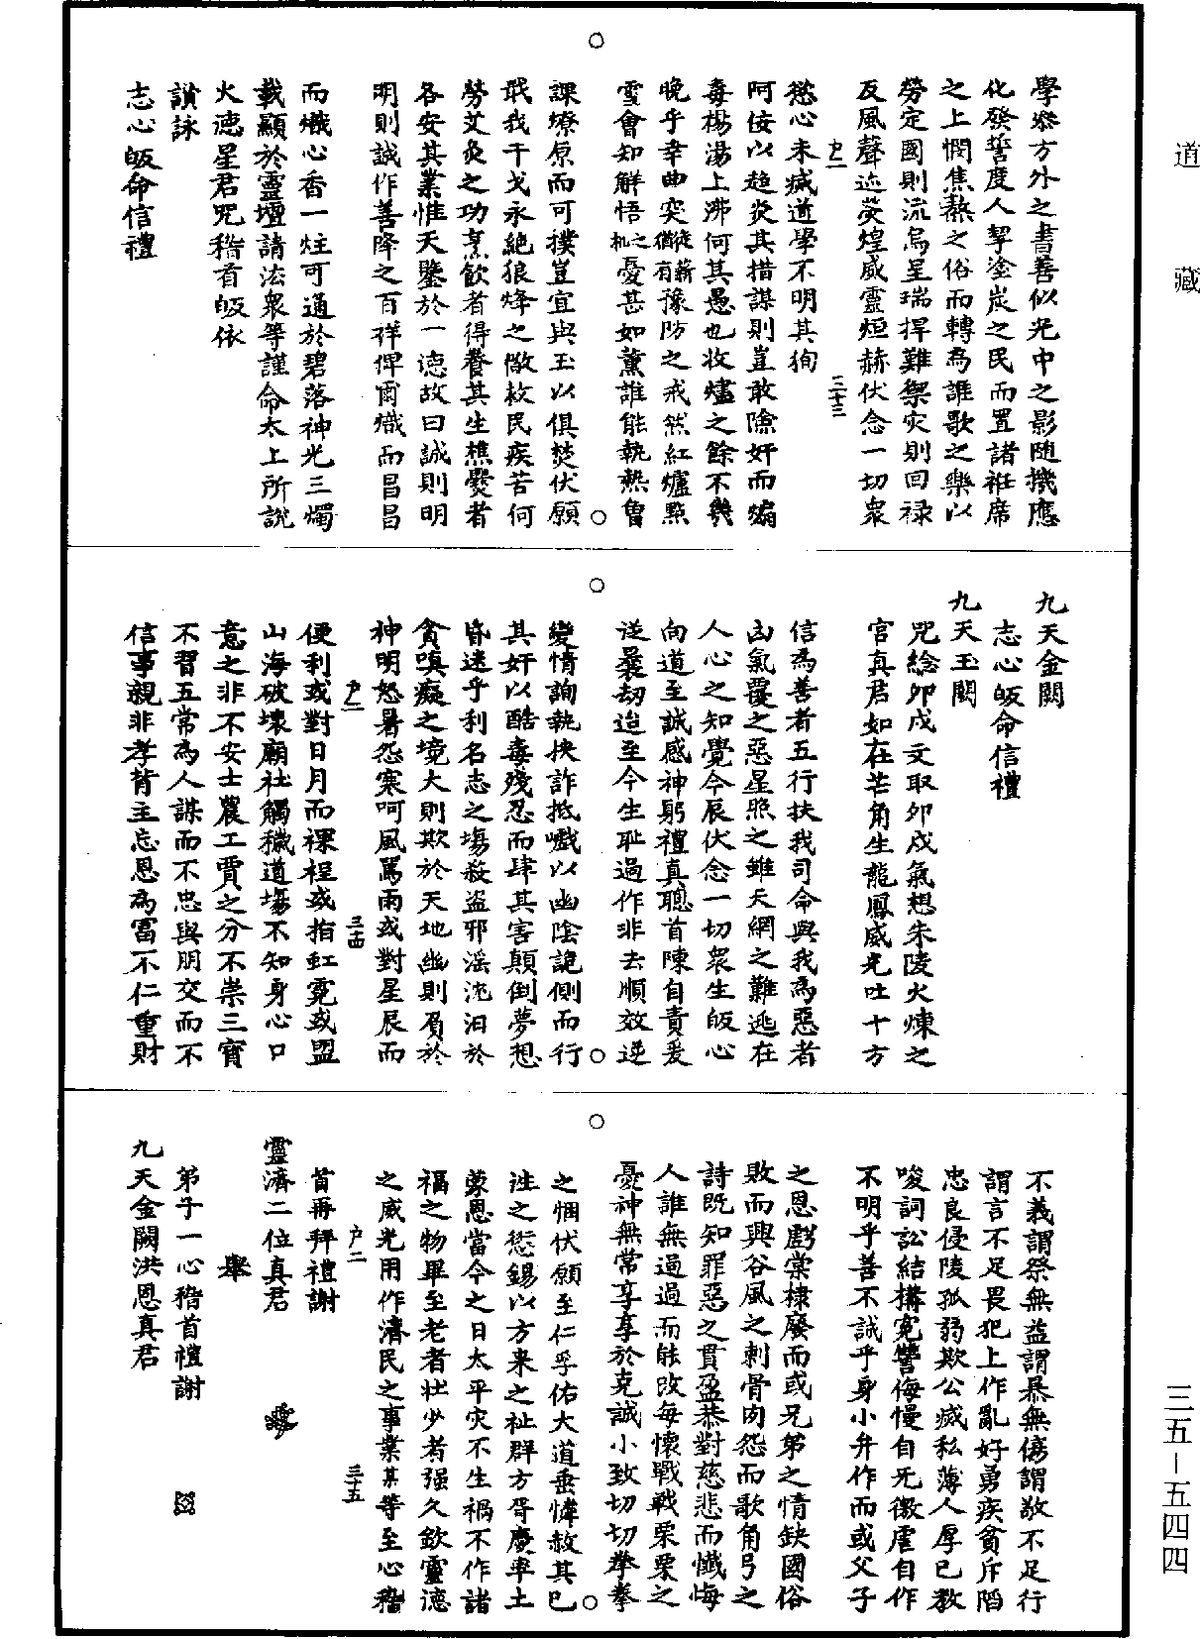 道藏
學參方外之書善似光中之影隨機應
化發誓度人挈塗炭之民而置諸袵席
之上憫焦熬之俗而轉為謳歌之樂以
勞定國則流烏呈瑞捍難禦灾則回禄
反風聲迹熒煌威靈烜赫伏念一切衆
户二 三十三
慾心未臧道學不明其狥
阿佞以趍炎其措謀則豈敢隂奸而煽
毒楊湯上沸何其愚也收燼之餘不幾
晚乎幸曲突徙薪猶有豫防之戒然紅爐點
雪會知解悟之机憂甚如薰誰能執熱魯
課燎原而可撲豈宜與玉以俱焚伏願
戢我干戈永絶狼烽之儆救民疾苦何
勞艾灸之功烹飲者得養其生樵爨者
各安其業惟天鑒於一德故曰誠則明
明則誠作善降之百祥俾爾熾而昌昌
而熾心香一炷可通於碧落神光三燭
載顯於靈壇請法衆等謹命太上所說
火德星君咒稽首皈依
讃詠
志心皈命信禮
九天金闕
志心皈命信禮
九天玉闕
咒捻卯戌文取卯戌氣想朱陵火煉之
官真君如在芒角生龍鳳威光吐十方
信為善者五行扶我司命與我為惡者
凶氣覆之惡星照之雖天網之難逃在
人心之知覺今辰伏念一切衆生皈心
向道至誠感神躬禮真聰首陳自責爰
逆曩劫迨至今生耻過作非去順效逆
變情詢執挾詐抵巇以幽陰詭側而行
其奸以酷毒殘忍而肆其害顛倒夢想
昏迷乎利名志之塲殺盜邪淫沈汩於
貪嗔癡之境大則欺於天地幽則罵於
神明怒暑怨寒呵風罵雨或對星辰而
户二 三十四
便利或對日月而裸裎或指虹霓或盟
山海破壞廟社觸穢道塲不知身心口
意之非不安士農工賈之分不崇三寳
不習五常為人謀而不忠與朋交而不
信事親非孝背主忘恩為富不仁重財
不義謂祭無益謂㬥無傷謂敬不足行
謂言不足畏犯上作亂好勇疾貧斥陷
忠良侵陵孤弱欺公滅私薄人厚已教
唆詞訟結搆寃讐侮慢自无徹虐自作
不明乎善不誠乎身小弁作而或父子
之恩虧棠棣廢而或兄弟之情缺國俗
敗而興谷風之刺骨肉怨而歌角弓之
詩既知罪惡之貫盈恭對慈悲而懺悔
人誰無過過而能改每懷戰戰栗栗之
憂神無常享享於克誠小致切切拳拳
之悃伏願至仁孚佑大道垂憐赦其已
徃之愆錫以方来之祉群方胥慶率土
蒙恩當今之日太平灾不生禍不作諸
福之物畢至老者壯少者强久欽靈德
之威光用作濟民之事業某等至心稽
户二 三十五
首再拜禮謝
靈濟二位真君
舉
弟子一心稽首禮謝
九天金闕洪恩真君
三五－五四四